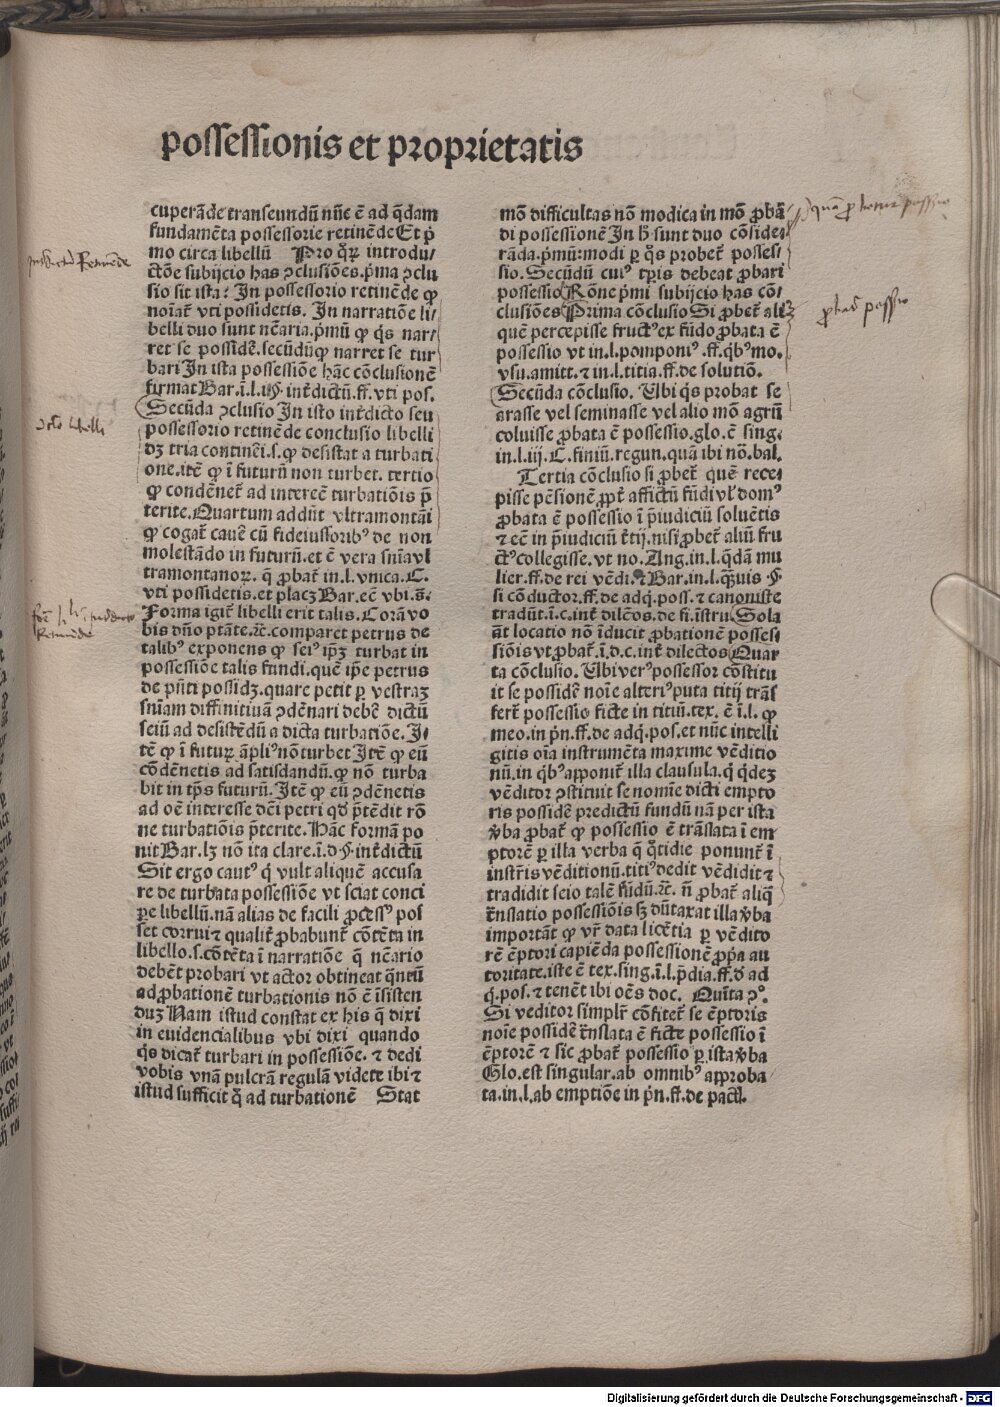 possessionis et proprietatis
cuperāde transeundū nūc ē ad q̄dam
fundamēta possessorie retinēde Et p̄
mo circa libellū Pro q̄ꝝ introdu⸗
ctōe subijcio has ꝯclusiōes. p̄ma ꝯclu
sio sit ista: In possessorio retinēde qꝫ
noīat̄ vti possidetis. In narratiōe li⸗
belli duo sunt nēaria. p̄mū ꝙ q̄s nar⸗
ret se possidē. secūdū ꝙ narret se tur
bari In ista possessiōe hāc cōclusionē
firmat Bar. ī. l. iij §. int̄dictū. ff. vti pos.
Secūda ꝯclusio In isto int̄dicto seu
possessorio retinēde conclusio libelli
dꝫ tria continēi. s. ꝙ desistat a turbati
one. itē ꝙ ī futurū non turbet. tertio
ꝙ condēnet̄ ad intereē turbatiōis p̄
terite. Quartum addūt vltramontāi
ꝙ cogat̄ cauē cū fideiussoribꝰ de non
molestādo in futurū. et ē vera snīa vl
tramontanoꝝ. q̄ ꝓbat̄ in. l. vnica. C.
vti possidetis. et placꝫ Bar. eē vbi. s̄.
Forma igit̄ libelli erit talis. Corā vo
bis dn̄o ptāte. ⁊c. comparet petrus de
talibꝰ exponens ꝙ seiꝰ ip̄ꝫ turbat in
possessiōe talis fundi. quē ip̄e petrus
de pn̄ti possidꝫ. quare petit ꝑ vestraꝫ
snīam diffinitiuā ꝯdēnari debē dictū
seiū ad desistēdū a dicta turbatiōe. I⸗
tē ꝙ ī futuꝝ āpliꝰ nō turbet Itē ꝙ eū
cōdēnetis ad satisdandū. ꝙ nō turba
bit in tp̄s futurū. Itē ꝙ eū ꝯdēnetis
ad oē interesse dc̄i petri qd̄ p̄tēdit rō
ne turbatiōis p̄terite. Hāc formā po
nit Bar. lꝫ nō ita clare. ī. d §. int̄dictū
Sit ergo cautꝰ q̄ vult aliquē accusa
re de turbata possessiōe vt sciat conci
ꝑe libellū. nā alias de facili ꝓcessꝰ pos
set corrui ⁊ qualit̄ ꝓbabunt̄ cōtēta in
libello. s. cōtēta ī narratiōe q̄ nēario
debēt probari vt actor obtineat q̄ntū
ad ꝓbationē turbationis nō ē īsisten
duꝫ Nam istud constat ex his q̄ dixi
in euidencialibus vbi dixi quando
q̄s dicat̄ turbari in possessiōe. ⁊ dedi
vobis vnā pulcrā regulā videte ibi ⁊
istud sufficit q̄ ad turbationē Stat
mō difficultas nō modica in mō ꝓbā⸗
di possessionē In h̄ sunt duo cōside⸗
rāda. p̄mū: modi ꝑ q̄s probet̄ posses⸗
sio. Secūdū cuiꝰ tp̄ris debeat ꝓbari
possessio Rōne p̄mi subijcio has cō⸗
clusiōes Prima cōclusio Si ꝓbet̄ ali⸗
quē percepisse fructꝰ ex fūdo ꝓbata ē
possessio vt in. l. pomponiꝰ. ff. q̄bꝰ mo.
vsu. amitt. ⁊ in. l. titia. ff. de solutiō.
Secūda cōclusio. Vbi q̄s probat se
arasse vel seminasse vel alio mō agrū
coluisse ꝓbata ē possessio. glo. ē sing.
in. l. iij. C. finiū. regun. quā ibi nō. bal.
Tertia cōclusio si ꝓbet̄ quē rece⸗
pisse pēsionē ꝓpt̄ affictū fūdi vl̄ domꝰ
ꝓbata ē possessio ī p̄iudiciū soluētis
⁊ eē in p̄iudiciū t̄tij. nisi ꝓbet̄ aliū fru
ctꝰ collegisse. vt no. Ang. in. l. q̄dā mu
lier. ff. de rei vēdi. ⁊ Bar. in. l. q̄uis §.
si cōductor. ff. de adq̄. pos. ⁊ canoniste
tradūt. ī. c. int̄ dilcōs. de fi. īstru. Sola
āt locatio nō īducit ꝓbationē posses⸗
siōis vt ꝓbat̄. ī. d. c. int̄ dilectos Quar
ta cōclusio. Vbi verꝰ possessor cōstitu
it se possidē noīe alteriꝰ puta titij trās
fert̄ possessio ficte in titiū. tex. ē ī. l. ꝙ
meo. in pn̄. ff. de adq̄. pos. et nūc intelli
gitis oīa instrumēta maxime vēditio
nū. in q̄bꝰ apponit̄ illa clausula. q̄ q̄deꝫ
vēditor ꝯstituit se nomīe dicti empto
ris possidē predictū fundū nā per ista
v̄ba ꝓbat̄ ꝙ possessio ē trāslata ī em
ptorē ꝑ illa verba q̄ q̄tidie ponunt̄ ī
instr̄is vēditionū. titiꝰ dedit vēdidit ⁊
tradidit seio talē fūdū. ⁊c. n̄ ꝓbat̄ aliq̄
t̄nslatio possessiōis sꝫ dūtaxat illa v̄ba
importāt ꝙ vr̄ data licētia ꝑ vēdito
rē ēptori capiēda possessionē ꝓp̄a au
toritate. iste ē tex. sing. ī. l. p̄dia. ff. d̄ ad
q̄. pos. ⁊ tenēt ibi oēs doc. Quīta ꝯº.
Si vēditor simplr̄ cōfitet̄ se ēptoris
noīe possidē t̄nslata ē ficte possessio ī
ēptorē ⁊ sic ꝓbat̄ possessio ꝑ ista v̄ba
Glo. est singular. ab omnibꝰ approba
ta. in. l. ab emptiōe in pn̄. ff. de pact̄.
Digitalisierung gefördert durch die Deutsche Forschungsgemeinschaft - DFG